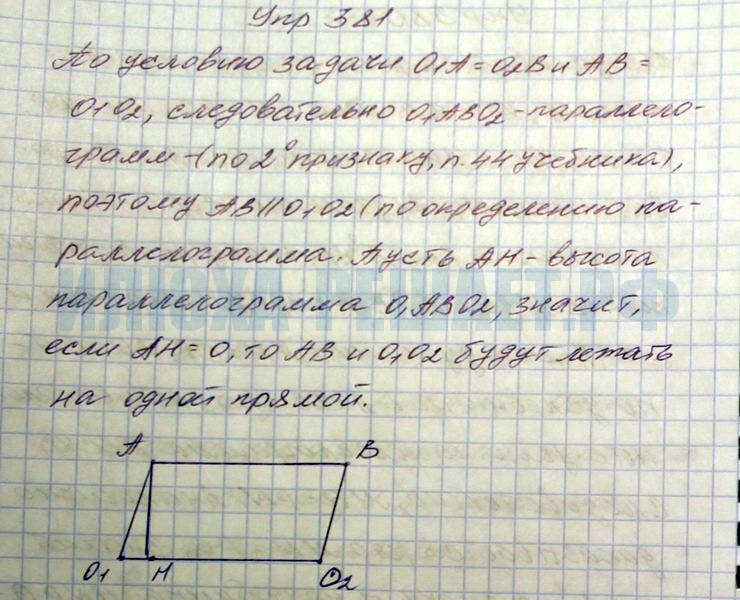 Упр 381
По условию задачи O₁A = O₂B и AB =
O₁O₂, следовательно O₁ABO₂ - параллело-
грамм - (по 2° признаку, п. 44 учебника),
поэтому AB || O₁O₂ (по определению па-
раллелограмма. Пусть AH - высота
параллелограмма O₁ABO₂, значит,
если AH = 0, то AB и O₁O₂ будут лежать
на одной прямой.
A B
O₁ H O₂